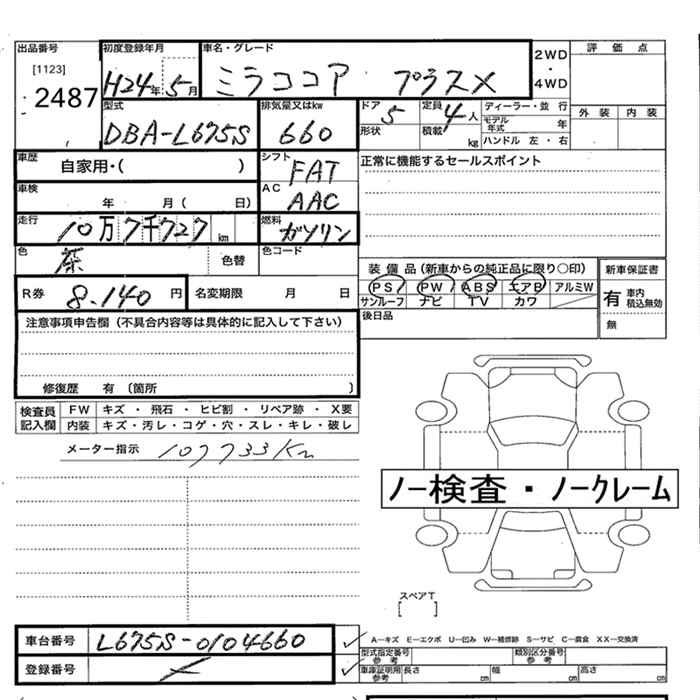 出品番号 初度登録年月 車名・グレード 2WD ・ 4WD 評価点
[1123]
2487 H24年5月 ミラココア プラスX
型式 排気量又はkw ドア 5 定員 4人 ディーラー・並 行 外装 内装
DBA-L675S 660 形状 積載 kg モデル年式 年
ハンドル 左・右
車歴 自家用・( ) シフト FAT 正常に機能するセールスポイント
車検 年 月( 日) AC AAC
走行 10万7千727km 燃料 ガソリン
色 茶 色替 色コード
装備品(新車からの純正品に限り○印) 新車保証書
R券 8.140円 名変期限 月 日 PS PW ABS エアB アルミW 有 車内積込無効
サンルーフ ナビ TV カワ
注意事項申告欄(不具合内容等は具体的に記入して下さい) 後日品 無
修復歴 有(箇所 )
検査員記入欄 FW キズ・飛石・ヒビ割・リペア跡・X要
内装 キズ・汚レ・コゲ・穴・スレ・キレ・破レ
メーター指示 107733Km
ノー検査・ノークレーム
スペアT
[ ]
車台番号 L675S-0104660 A−キズ E−エクボ U−凹み W−補修跡 S−サビ C−腐食 XX−交換済
型式指定番号 参考 類別区分番号 参考
登録番号 車庫証明用 参考 長さ cm 幅 cm 高さ cm